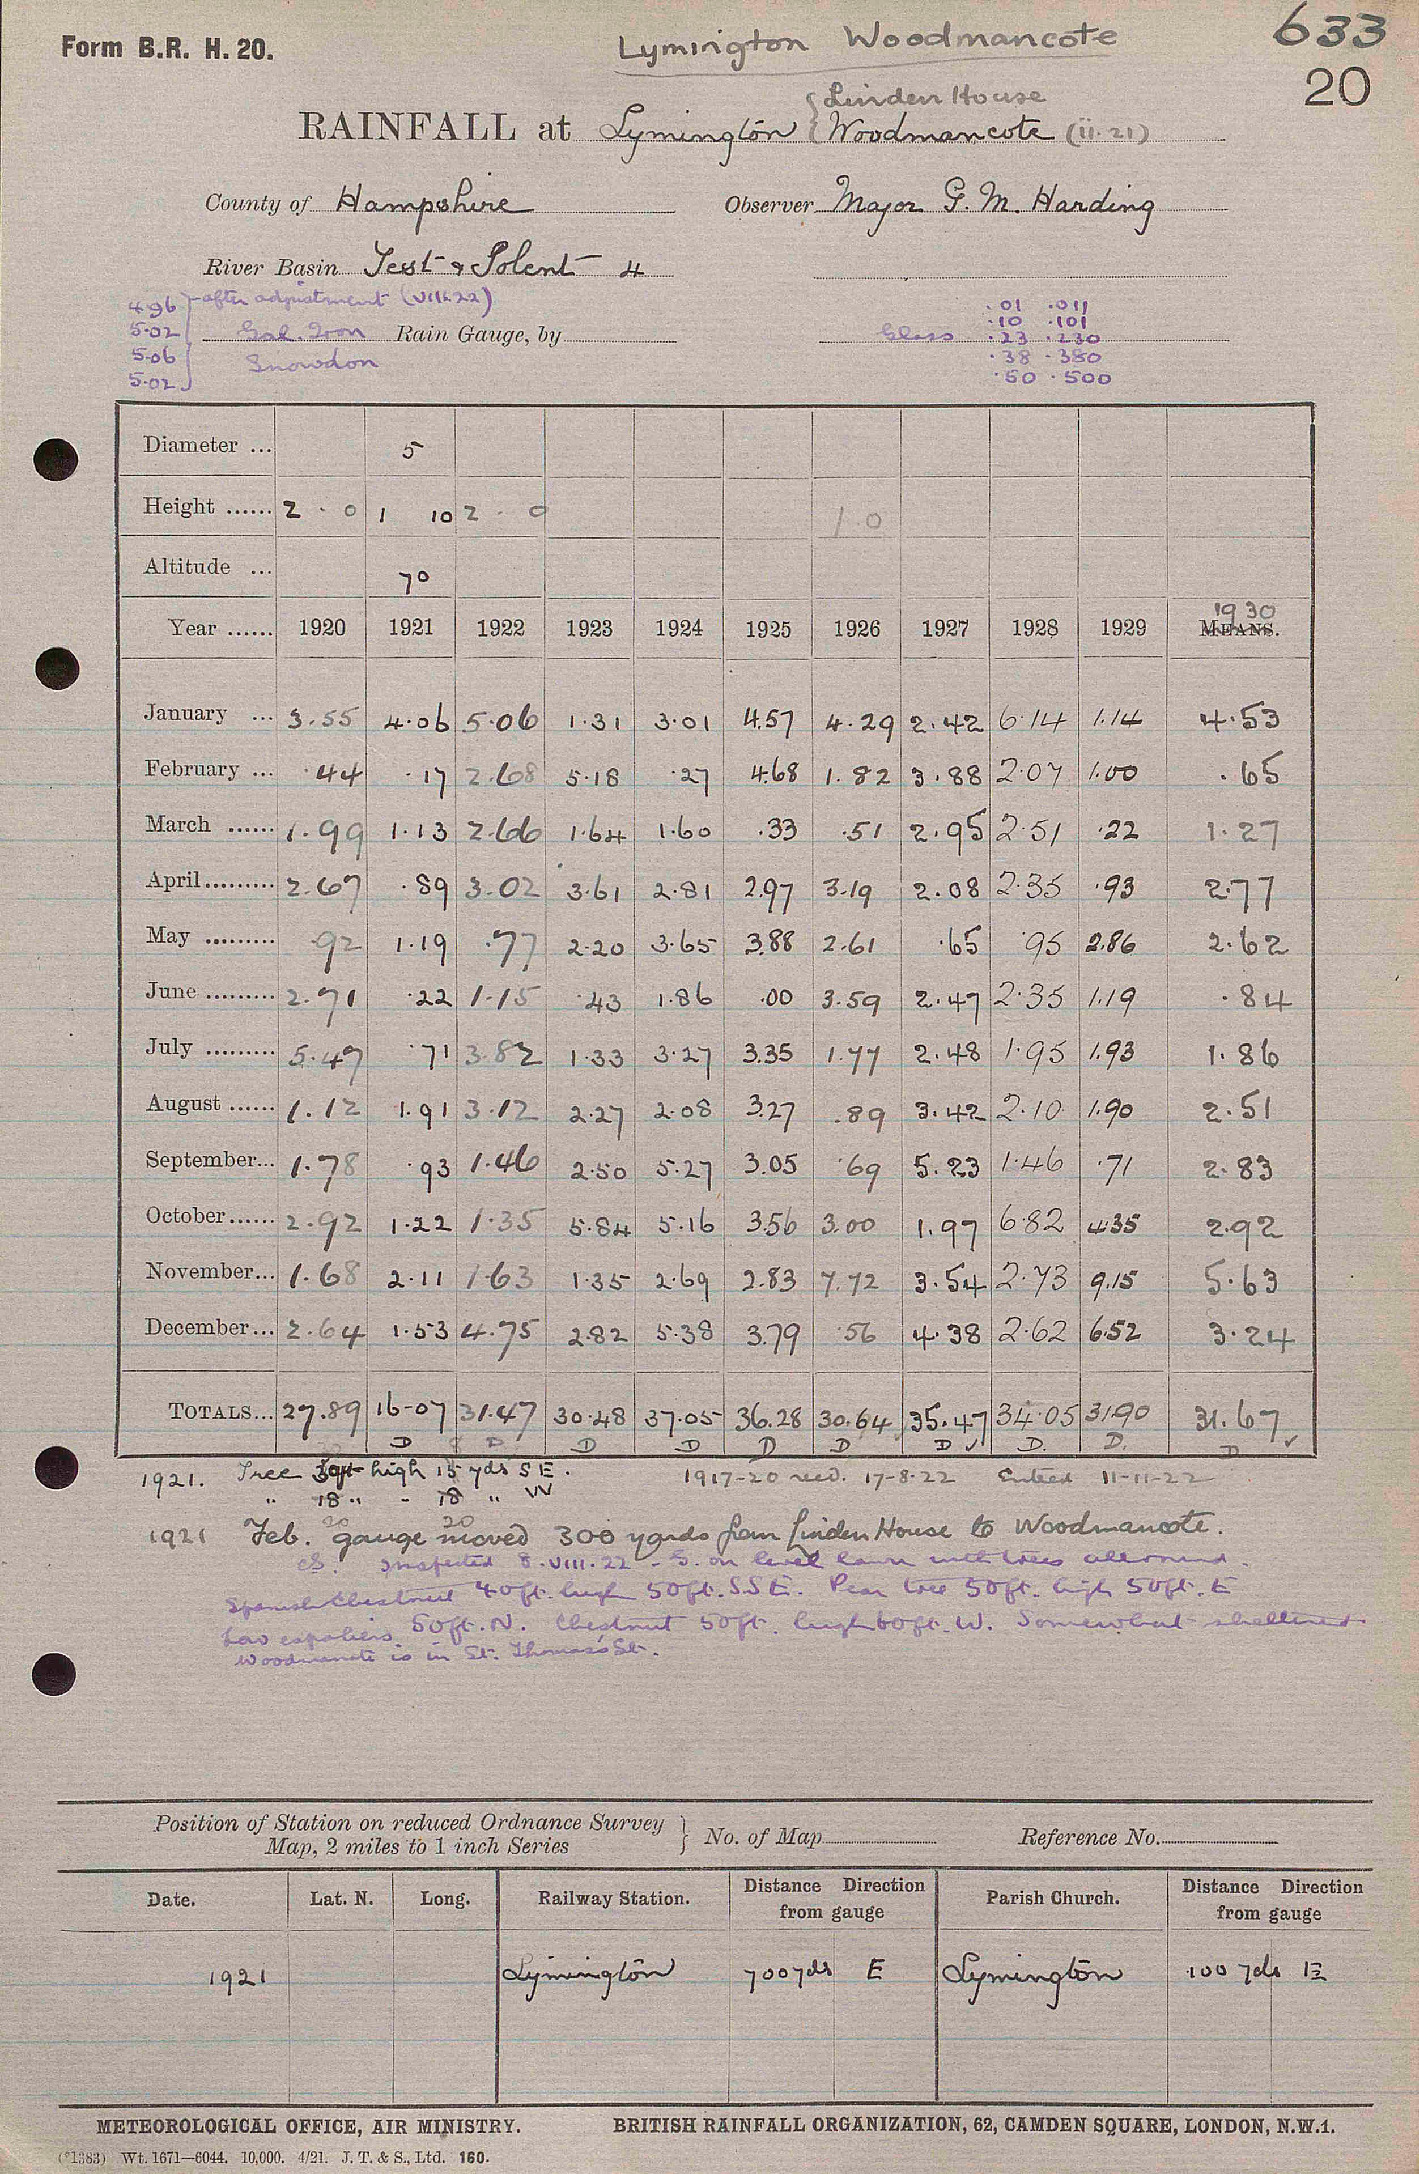 Form B.R. H. 20.
Lymington Woodmancote
633
20
Linden House
RAINFALL at Lymington { Woodmancote (ii.21)
County of Hampshire Observer Major G. M. Harding
River Basin Test & Solent 4
4.96 } after adjustment (VIII.22)
5.02
5.06
5.02
Gal. Iron Rain Gauge, by
Snowdon
Glass
.01 .011
.10 .101
.23 .230
.38 .380
.50 .500
Diameter ... 5
Height ...... 2 . 0 1 10 2 . 0 1.0
Altitude ... 70
Year ...... 1920 1921 1922 1923 1924 1925 1926 1927 1928 1929 MEANS. 1930
January ... 3.55 4.06 5.06 1.31 3.01 4.57 4.29 2.42 6.14 1.14 4.53
February ... .44 .17 2.68 5.18 .27 4.68 1.82 3.88 2.07 1.00 .65
March ...... 1.99 1.13 2.66 1.64 1.60 .33 .51 2.95 2.51 .22 1.27
April......... 2.67 .89 3.02 3.61 2.81 2.97 3.19 2.08 2.35 .93 2.77
May ......... .92 1.19 .77 2.20 3.65 3.88 2.61 .65 .95 2.86 2.62
June ......... 2.71 .22 1.15 .43 1.86 .00 3.59 2.47 2.35 1.19 .84
July ......... 5.47 .71 3.82 1.33 3.27 3.35 1.77 2.48 1.95 1.93 1.86
August ...... 1.12 1.91 3.12 2.27 2.08 3.27 .89 3.42 2.10 1.90 2.51
September... 1.78 .93 1.46 2.50 5.27 3.05 .69 5.23 1.46 .71 2.83
October...... 2.92 1.22 1.35 5.84 5.16 3.56 3.00 1.97 6.82 4.35 2.92
November... 1.68 2.11 1.63 1.35 2.69 2.83 7.72 3.54 2.73 9.15 5.63
December... 2.64 1.53 4.75 2.82 5.38 3.79 .56 4.38 2.62 6.52 3.24
TOTALS... 27.89 16.07 31.47 30.48 37.05 36.28 30.64 35.47 34.05 31.90 31.67
D D D D D D D ✓ D. D. D ✓
1921. Tree 30ft high 15 yds S E. 1917-20 recd. 17-8-22 Entred 11-11-22
" 18 " - 18 " W
20 20
1921 Feb. gauge moved 300 yards from Linden House to Woodmancote.
cS. Inspected 8.VIII.22 - G. on level lawn with trees all round.
Spanish Chestnut 40ft. high 50ft. SSE. Pear tree 50ft. high 50ft. E
Low espaliers 50ft. N. Chestnut 50ft. high 60ft. W. Somewhat sheltered.
Woodmancote is in St. Thomas's St.
Position of Station on reduced Ordnance Survey
Map, 2 miles to 1 inch Series } No. of Map Reference No.
Date. Lat. N. Long. Railway Station. Distance Direction from gauge Parish Church. Distance Direction from gauge
1921 Lymington 700 yds E Lymington 100 yds E
METEOROLOGICAL OFFICE, AIR MINISTRY. BRITISH RAINFALL ORGANIZATION, 62, CAMDEN SQUARE, LONDON, N.W.1.
(*1383) Wt. 1671—6044. 10,000. 4/21. J. T. & S., Ltd. 160.